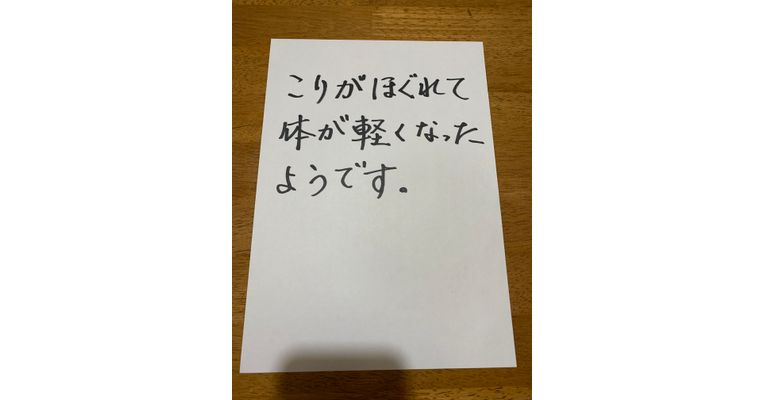 こりがほぐれて
体が軽くなった
ようです。